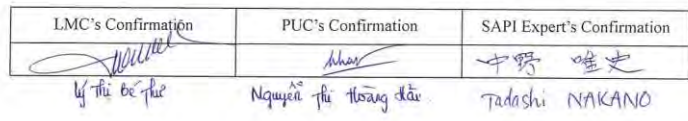 LMC's Confirmation PUC's Confirmation SAPI Expert's Confirmation
中野 唯史
Lý Thị Bé Thư Nguyễn Thị Hoàng Hắc Tadashi NAKANO